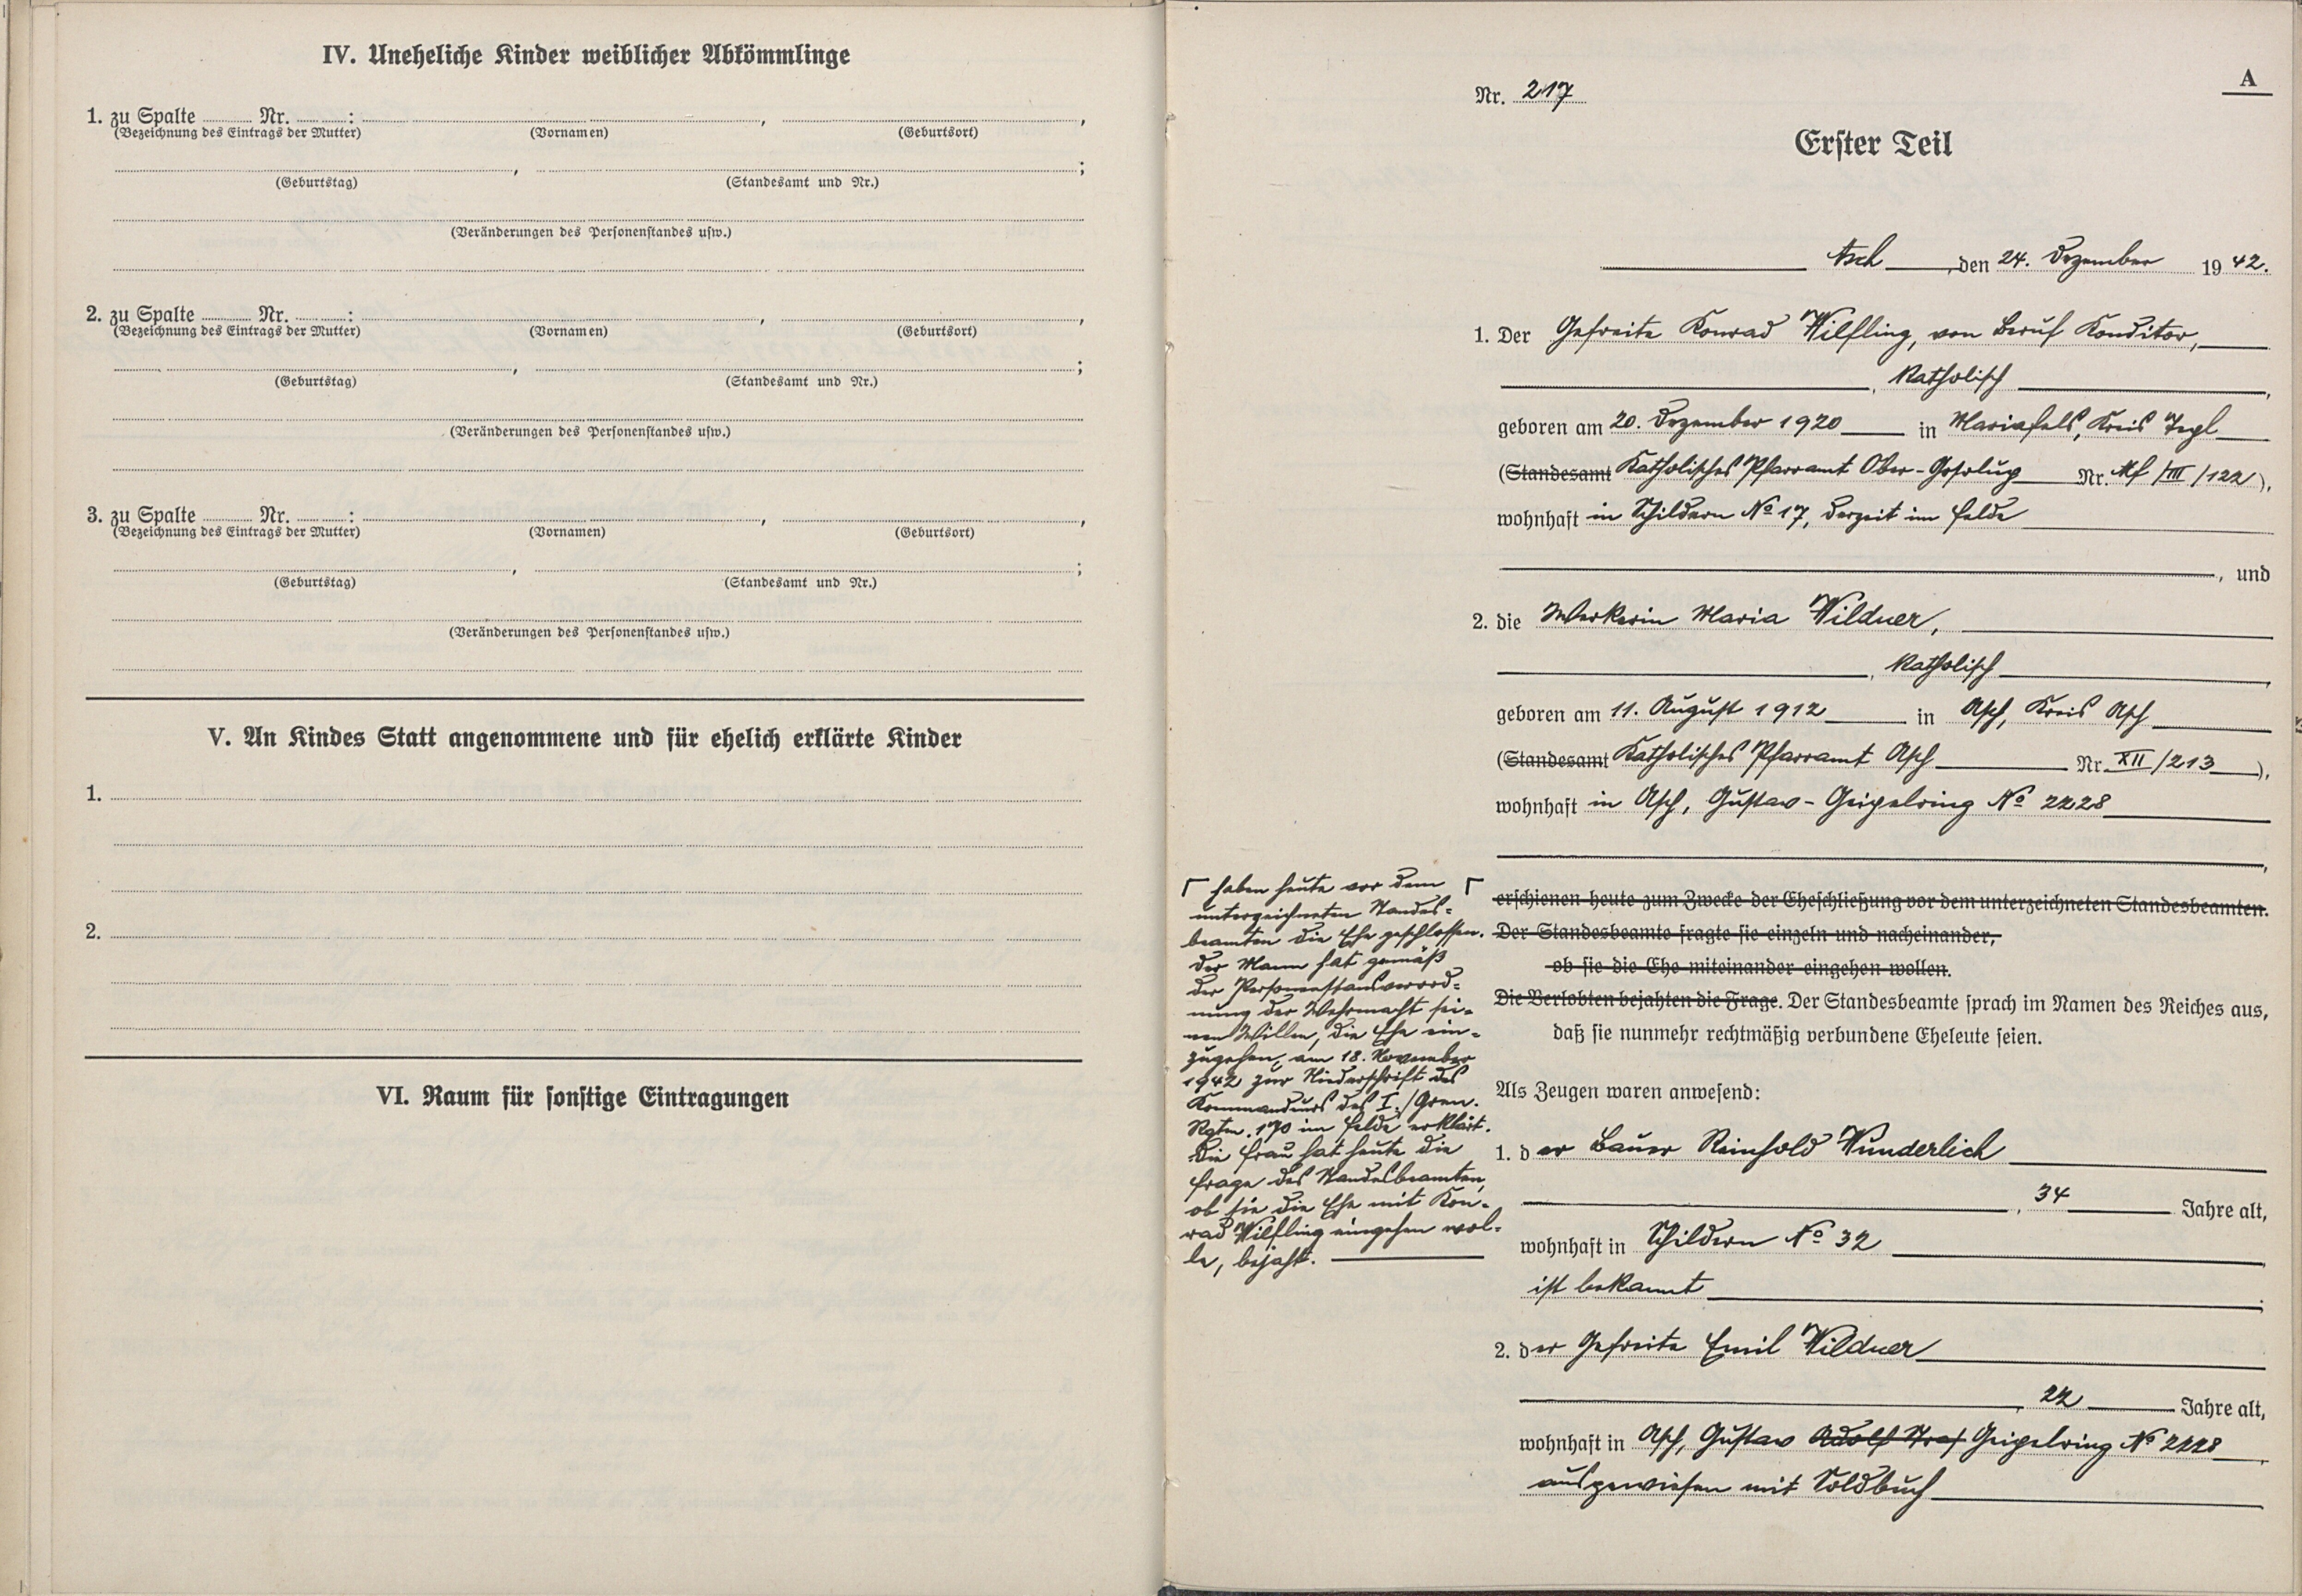 IV. Uneheliche Kinder weiblicher Abkömmlinge
1. zu Spalte Nr. : , ,
(Bezeichnung des Eintrags der Mutter) (Vornamen) (Geburtsort)
, ;
(Geburtstag) (Standesamt und Nr.)
(Veränderungen des Personenstandes usw.)
2. zu Spalte Nr. : , ,
(Bezeichnung des Eintrags der Mutter) (Vornamen) (Geburtsort)
, ;
(Geburtstag) (Standesamt und Nr.)
(Veränderungen des Personenstandes usw.)
3. zu Spalte Nr. : , ,
(Bezeichnung des Eintrags der Mutter) (Vornamen) (Geburtsort)
, ;
(Geburtstag) (Standesamt und Nr.)
(Veränderungen des Personenstandes usw.)
V. An Kindes Statt angenommene und für ehelich erklärte Kinder
1.
2.
VI. Raum für sonstige Eintragungen
A
Nr. 217
Erster Teil
Asch, den 24. Dezember 1942.
1. Der Gefreite Konrad Wilfling, von Beruf Konditor,
, katholisch,
geboren am 20. Dezember 1920 in Mariafels, Kreis Tepl
(Standesamt Katholisches Pfarramt Ober- Nr. Mf/III/122),
wohnhaft in Schildern No 17, derzeit im Felde
, und
2. die Wirkerin Maria Wildner,
, katholisch,
geboren am 11. August 1912 in Asch, Kreis Asch
(Standesamt Katholisches Pfarramt Asch Nr. XII/213),
wohnhaft in Asch, Gustav-Geipelring No 2228
,
erschienen heute zum Zwecke der Eheschließung vor dem unterzeichneten Standesbeamten.
Der Standesbeamte fragte sie einzeln und nacheinander,
ob sie die Ehe miteinander eingehen wollen.
Die Verlobten bejahten die Frage. Der Standesbeamte sprach im Namen des Reiches aus,
daß sie nunmehr rechtmäßig verbundene Eheleute seien.
haben heute vor dem
unterzeichneten Standes=
beamten die Ehe geschlossen.
Der Mann hat gemäß
der Personenstandsverord=
nung der Wehrmacht sei=
nen Willen, die Ehe ein=
zugehen, am 18. November
1942 zur Niederschrift des
Kommandeurs des I./Gren.
Rgtm. 170 im Felde erklärt.
Die Frau hat heute die
Frage des Standesbeamten,
ob sie die Ehe mit Kon=
rad Wilfling eingehen wol=
le, bejaht.
Als Zeugen waren anwesend:
1. der Bauer Reinhold Wunderlich
, 34 Jahre alt,
wohnhaft in Schildern No 32
ist bekannt;
2. der Gefreite Emil Wildner
, 22 Jahre alt,
wohnhaft in Asch, Gustav Adolf Straß Geipelring No 2228,
ausgewiesen mit Soldbuch